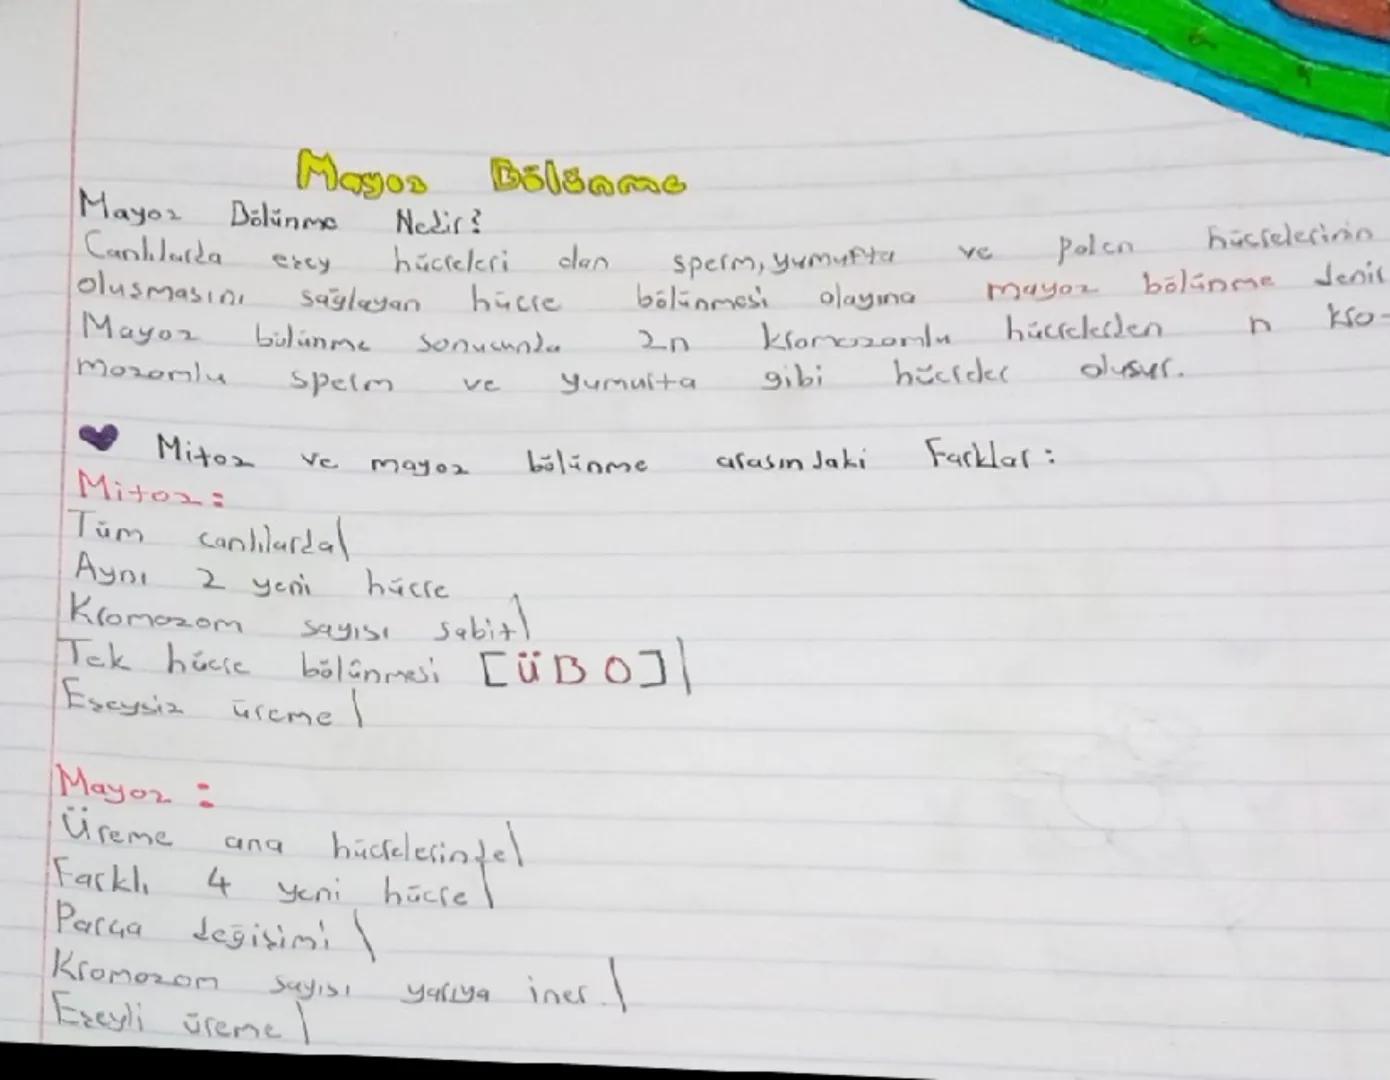 Mayoz Bölünme
Mayoz Bölünme Nedir?
Canlılarda eşey hücreleri olan sperm, yumurta ve polen hücrelerinin
oluşmasını sağlayan hücre bölünmesi olayına mayoz bölünme denir
Mayoz bölünme sonucunda 2n kromozomlu hücrelerden n kro-
mozomlu sperm ve yumurta gibi hücreler oluşur.
Mitoz ve mayoz bölünme arasındaki Farklar:
Mitoz:
Tüm canlılarda
Aynı 2 yeni hücre
Kromozom sayısı sabit
Tek hücre bölünmesi [ÜBO]
Eşeysiz üreme
Mayoz:
Üreme ana hücrelerinde
Farklı 4 yeni hücre
Parça değişimi
Kromozom sayısı yarıya iner.
Eşeyli üreme